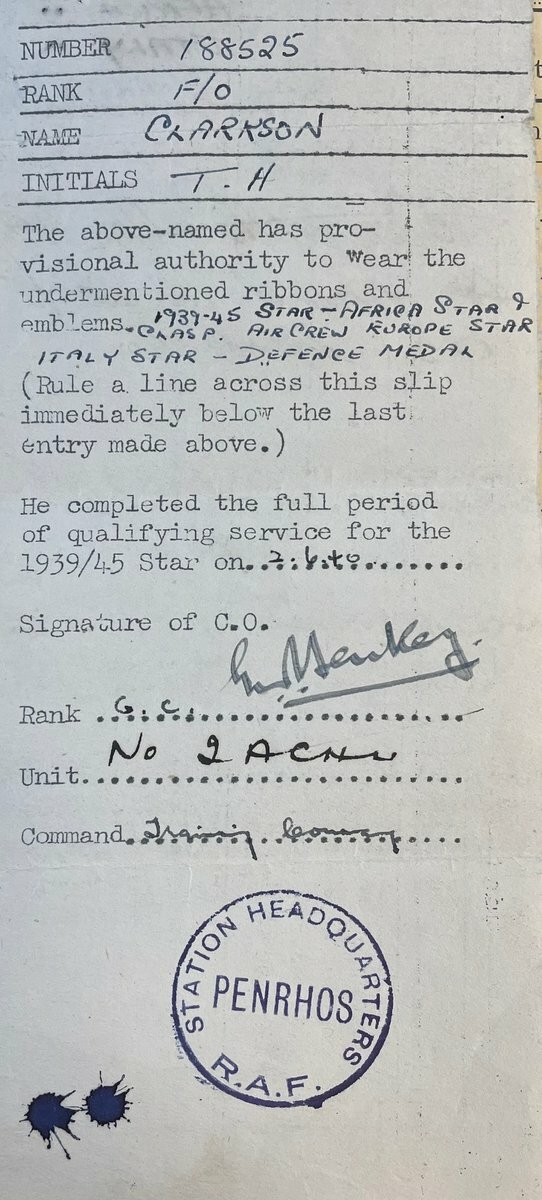 NUMBER 188525
RANK F/O
NAME CLARKSON
INITIALS T. H
The above-named has pro-
visional authority to wear the
undermentioned ribbons and
emblems. 1939-45 STAR - AFRICA STAR &
CLASP. AIRCREW EUROPE STAR
ITALY STAR - DEFENCE MEDAL
(Rule a line across this slip
immediately below the last
entry made above.)
He completed the full period
of qualifying service for the
1939/45 Star on..2:6:40........
Signature of C.O.
Rank ..G.C...........................
Unit.. No 2
Command..Training
STATION HEADQUARTERS
PENRHOS
R.A.F.